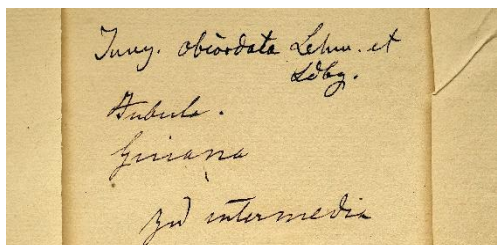 Jung. obcordata Lehm. et
Ldbg.
Guiana
zu intermedia